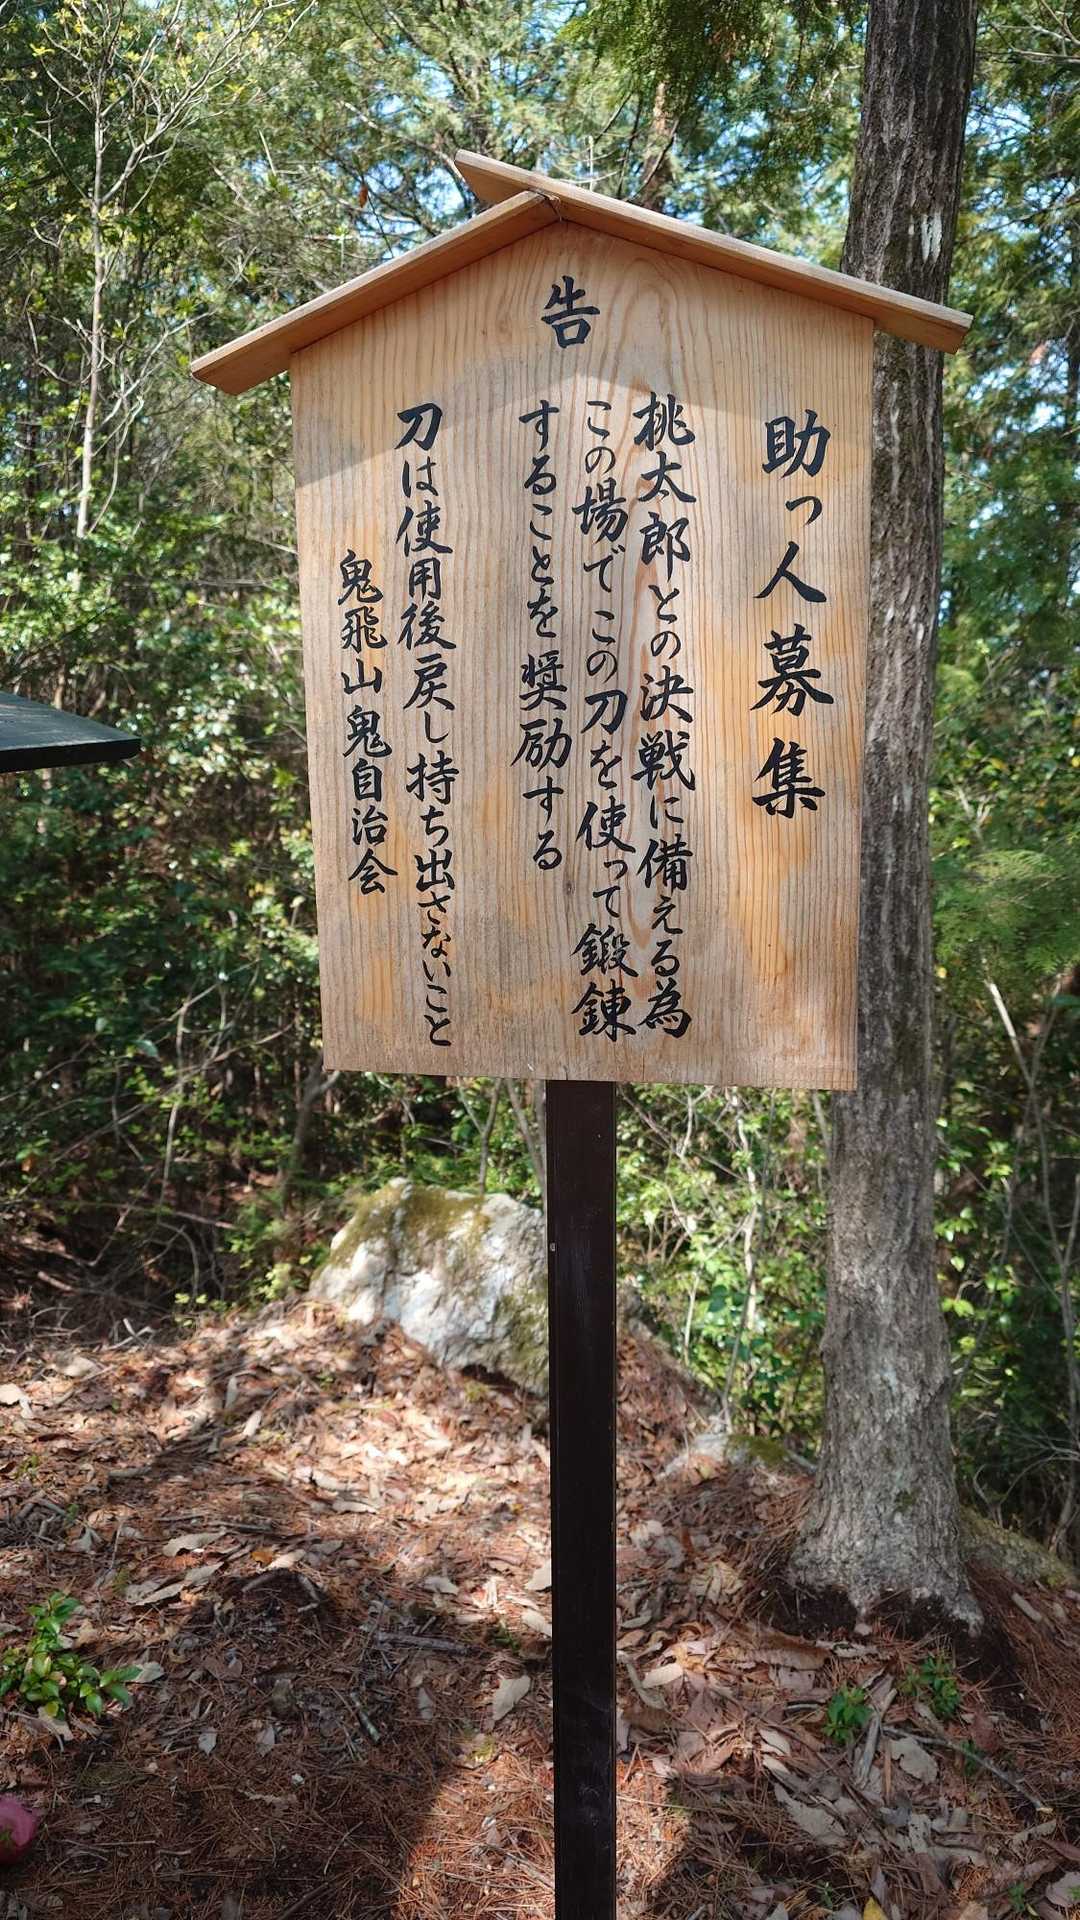 告
助っ人募集
桃太郎との決戦に備える為
この場でこの刀を使って鍛錬
することを奨励する
刀は使用後戻し持ち出さないこと
鬼飛山鬼自治会